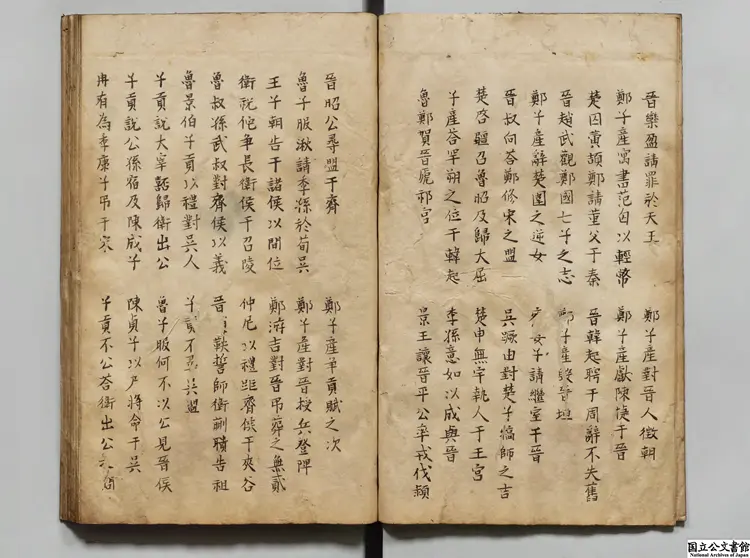 晉欒盈請罪於天王
鄭子產對晉人徵朝
鄭子產寓書范匄以輕幣
鄭子產獻陳捷于晉
楚囚黃頡鄭請董父于秦
晉韓起聘于周辭不失舊
晉趙武觀鄭國七子之志
鄭子產毀晉垣
鄭子產辭楚圍之逆女
子請繼室于晉
晉叔向荅鄭修宋之盟
吳蹶由對楚子犒師之吉
楚啓疆召魯昭及歸大屈
楚申無宇執人于王宮
子產荅罕朔之位于韓起
季孫意如以成與晉
魯鄭賀晉虒祁宮
景王讓晉平公率戎伐潁
晉昭公尋盟于齊
鄭子產爭貢賦之次
魯子服湫請季孫於荀吳
鄭子產對晉授兵登陴
王子朝告于諸侯以間位
鄭游吉對晉弔葬之無貳
衛祝佗爭長衛侯于召陵
仲尼以禮歫齊侯于夾谷
魯叔孫武叔對齊侯以義
晉鞅誓師衛蒯聵告祖
魯景伯子貢以禮對吳人
子貢不尋吳盟
子貢說大宰嚭歸衛出公
魯子服何不以公見晉侯
子貢說公孫宿及陳成子
陳貞子以尸將命于吳
冉有為季康子弔于宋
子貢不公荅衛出公
国立公文書館
National Archives of Japan